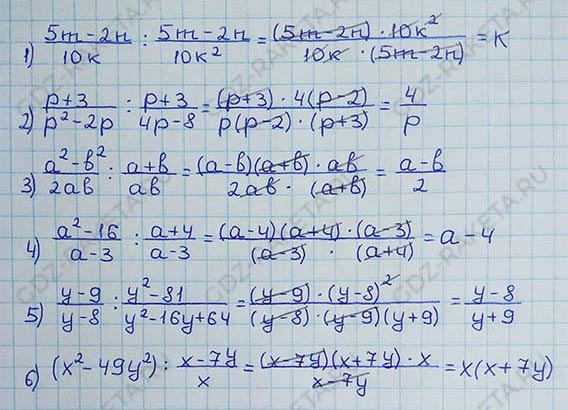 1) (5m-2n)/(10k) : (5m-2n)/(10k²) = ((5m-2n)·10k²)/(10k·(5m-2n)) = k
2) (p+3)/(p²-2p) : (p+3)/(4p-8) = ((p+3)·4(p-2))/(p(p-2)·(p+3)) = 4/p
3) (a²-b²)/(2ab) : (a+b)/(ab) = ((a-b)(a+b)·ab)/(2ab·(a+b)) = (a-b)/2
4) (a²-16)/(a-3) : (a+4)/(a-3) = ((a-4)(a+4)·(a-3))/((a-3)·(a+4)) = a-4
5) (y-9)/(y-8) : (y²-81)/(y²-16y+64) = ((y-9)·(y-8)²)/((y-8)·(y-9)(y+9)) = (y-8)/(y+9)
6) (x²-49y²) : (x-7y)/x = ((x-7y)(x+7y)·x)/(x-7y) = x(x+7y)
GDZ-RAKETA.RU